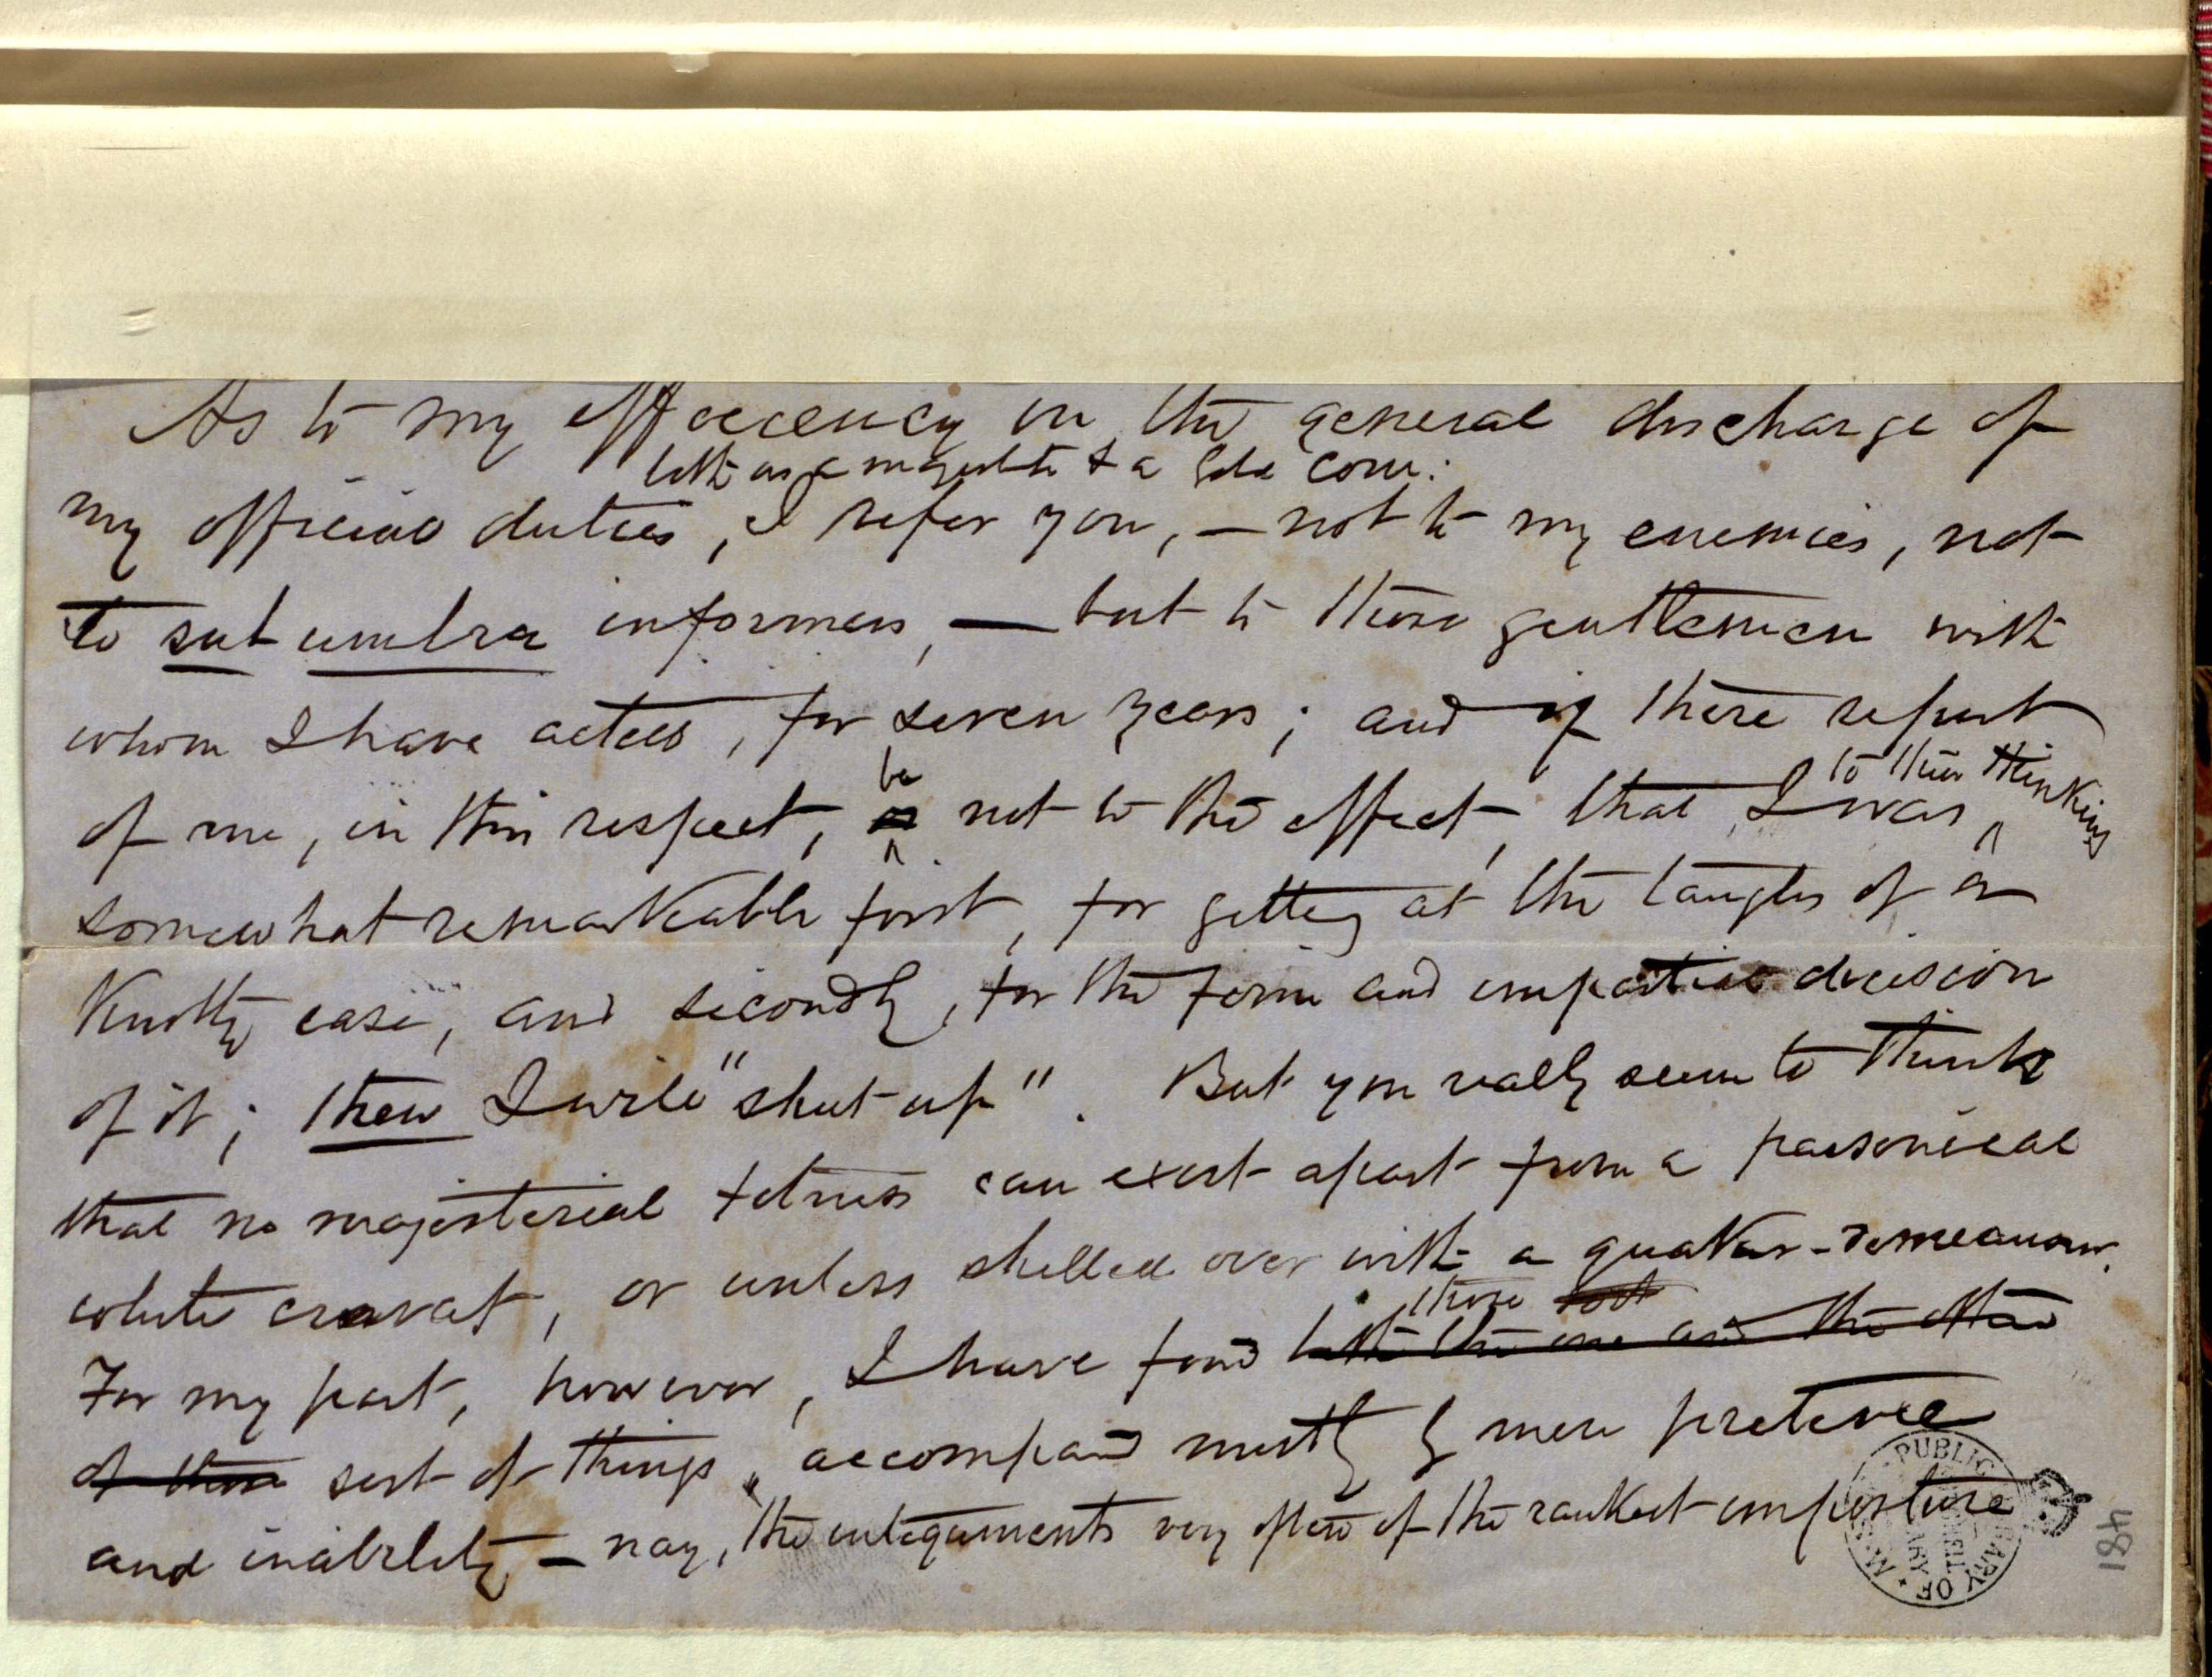 As to my effeciency in the general discharge of
both as a magistte & a Gld Com:
my official duties, I refer you, — not to my enemies, not
to sub umbra informers, — but to those gentlemen with
whom I have acted, for seven years; and if there report
be to their thinking
of me, in this respect, not to the effect, that I was
somewhat remarkable first, for getting at the tangles of a
Knotty case, and secondly, for the firm and impartial decision
of it; then I will "shut-up". But you really seem to think
that no magisterial fitness can exist apart from a parsonical
white cravat, or unless shelled over with a quaker-demeanour.
these
For my part, however, I have found both the one and the other
of these sort of things, accompand mostly by mere pretence
and inability — nay, the integuments very often of the rankest imposture
PUBLIC LIBRARY OF N.S.W.
481